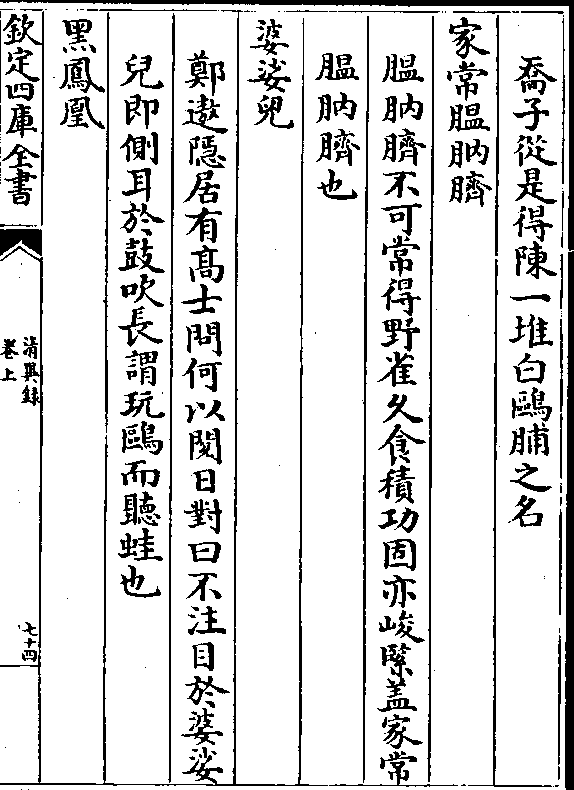 喬子從是得陳一堆白鷗脯之名
家常腽肭臍
腽肭臍不可常得野雀久食積功固亦峻緊盖家常
腽肭臍也
婆娑兒
鄭遨隱居有髙士問何以閱日對曰不注目於婆娑
兒即側耳於鼓吹長謂玩鷗而聽蛙也
黑鳳凰
欽定四庫全書
清異錄
卷上
七十四